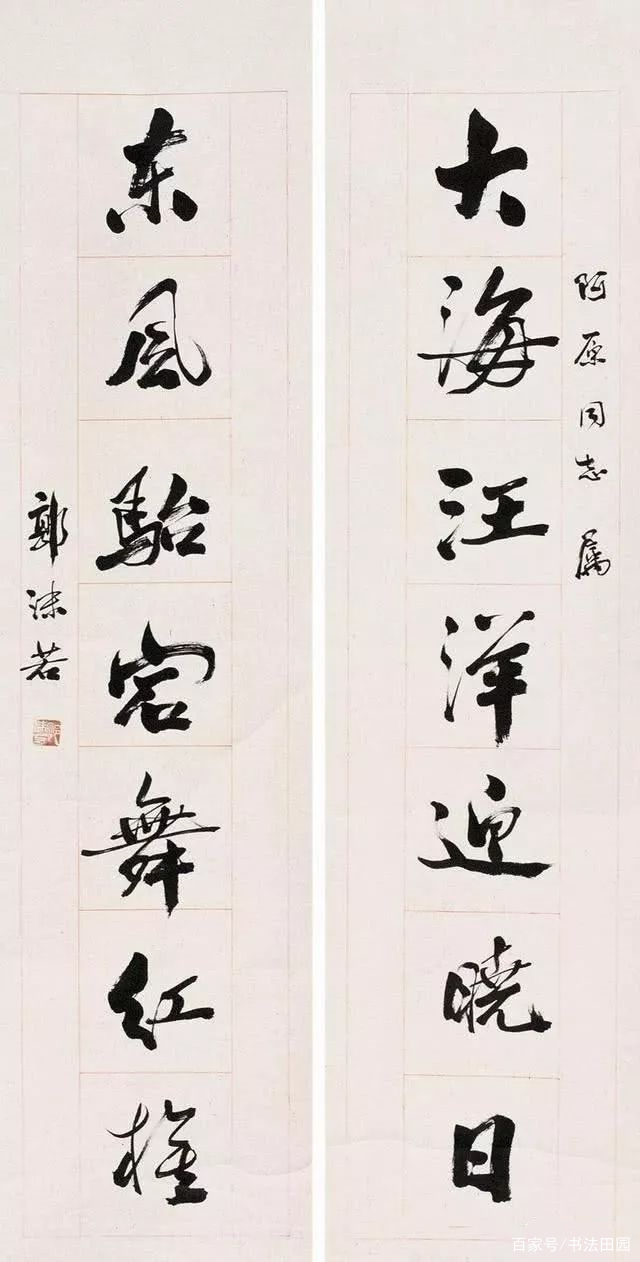 阿原同志 属
大海汪洋迎晓日
东风駘宕舞红旌
郭沫若
百家号/书法田园